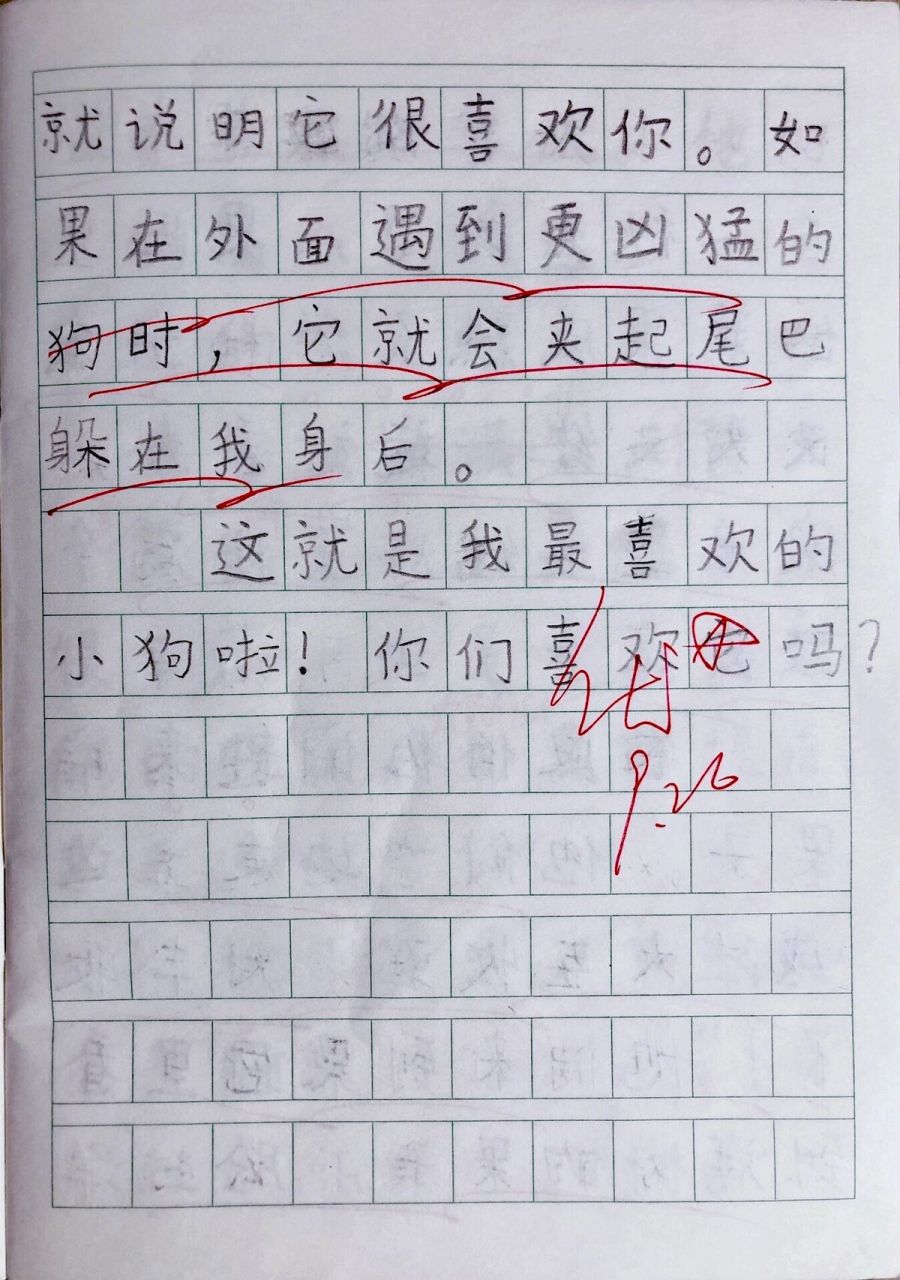 就说明它很喜欢你。如
果在外面遇到更凶猛的
狗时，它就会夹起尾巴
躲在我身后。
这就是我最喜欢的
小狗啦！你们喜欢它吗？
9.26